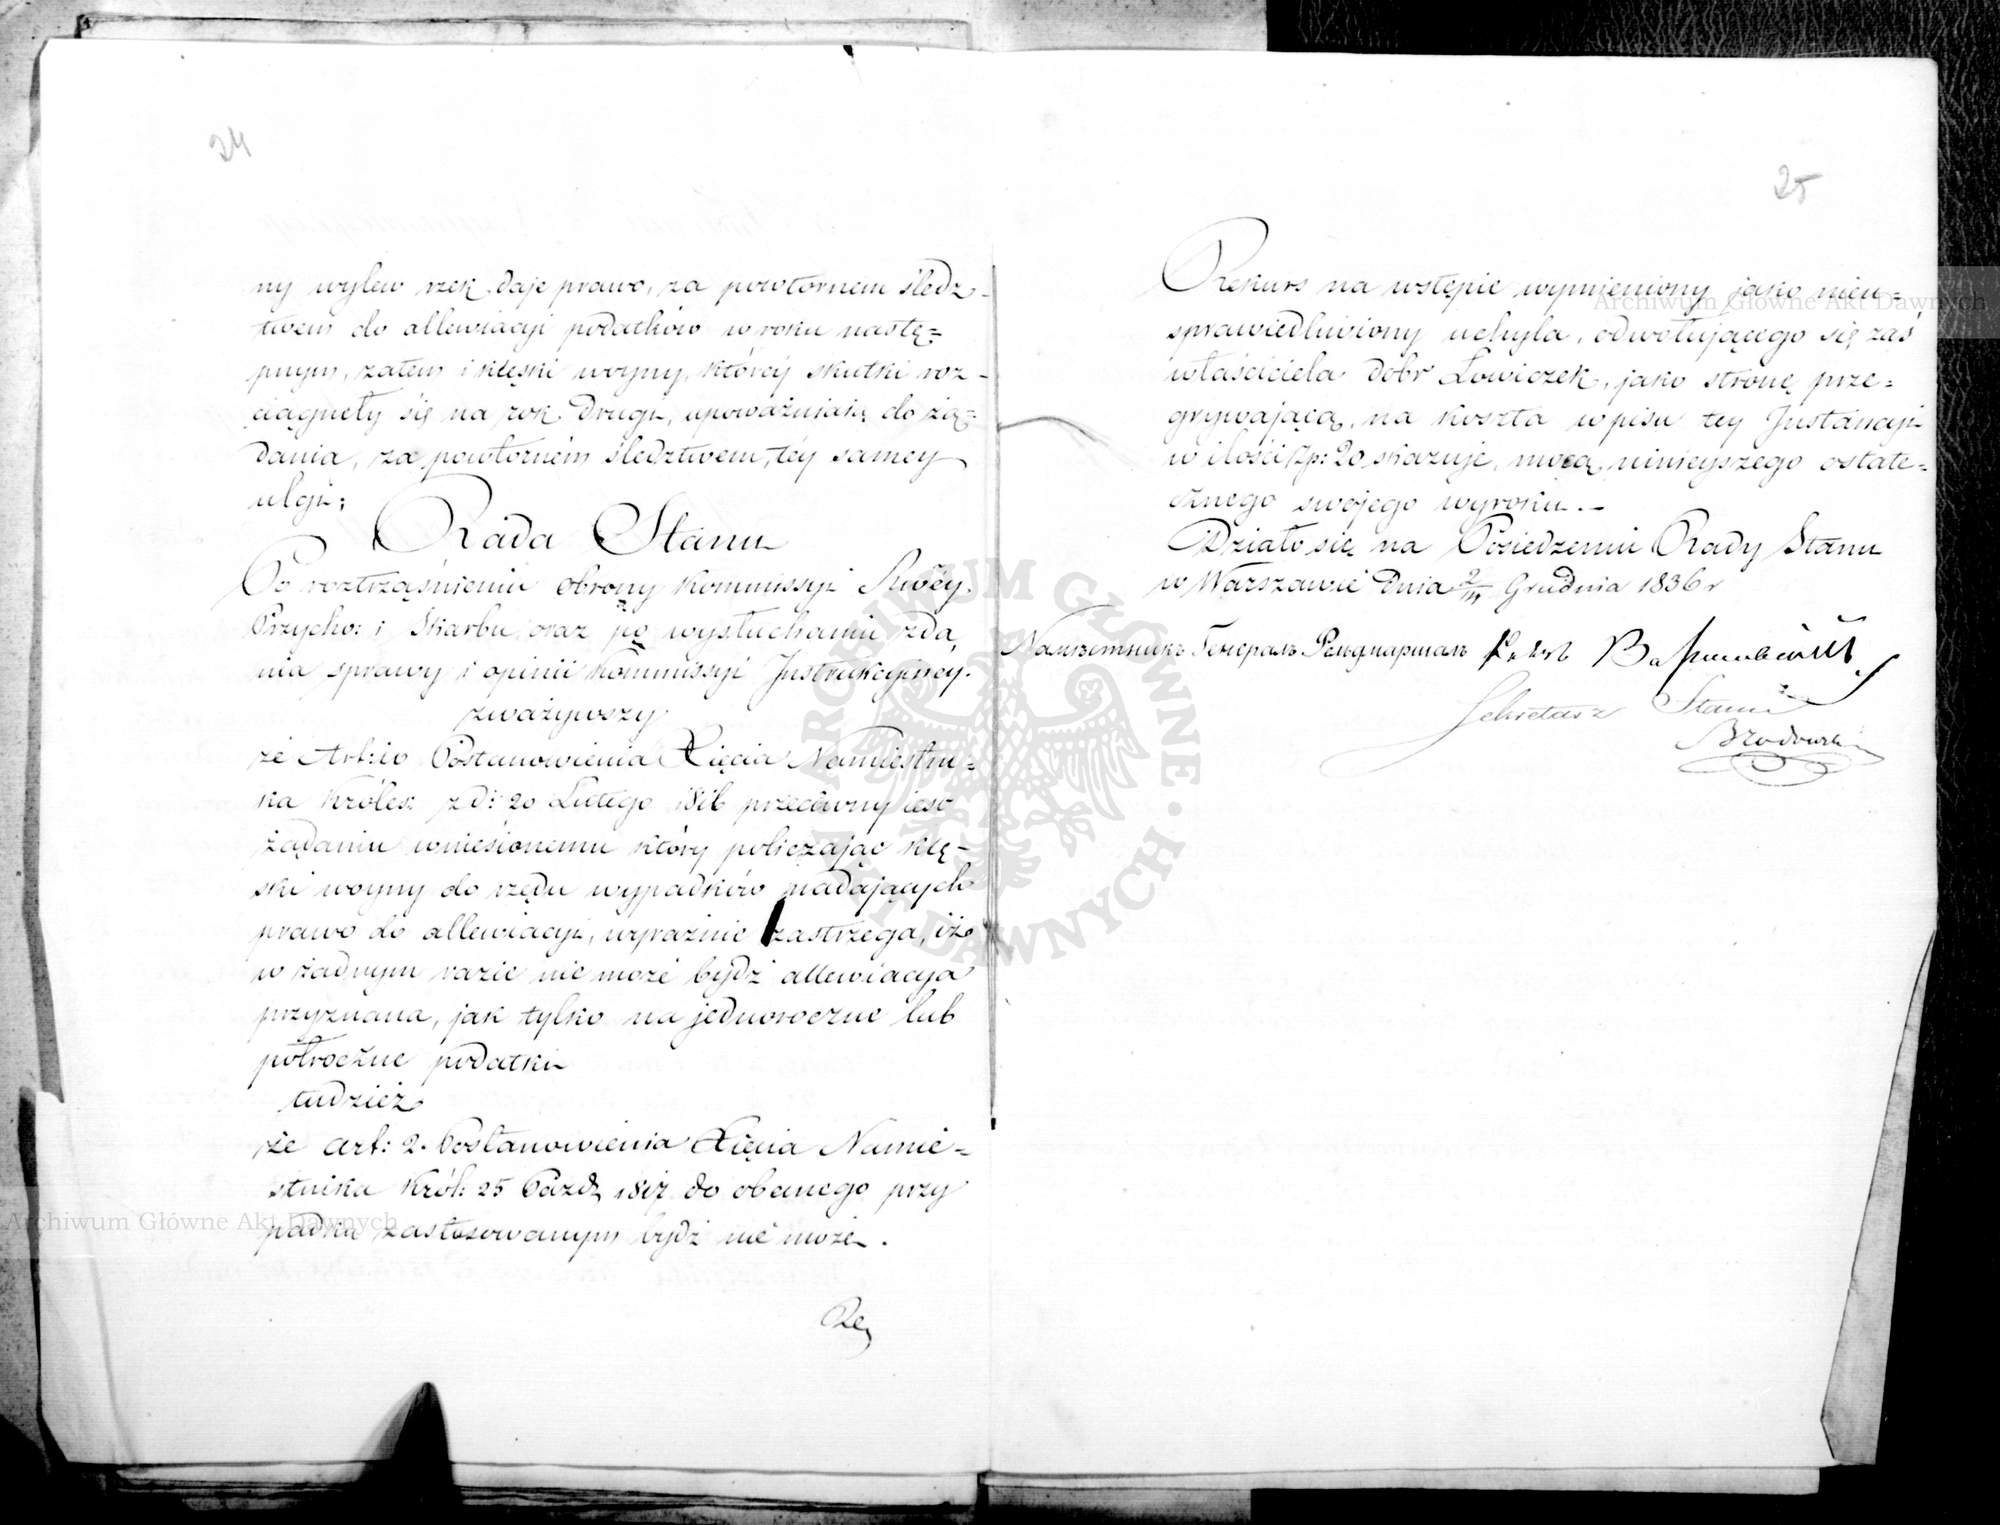 24
ny wylew rzek daje prawo, za powtornem śledz-
twem do allewiacyi podatków w roku nastę=
pnym, zatem i klęski woyny, któréy skutki roz-
ciągnęły się na rok drugi, upoważniaią do żą=
dania, za powtórném śledztwem, téy samey
ulgi;
Rada Stanu
Po roztrząśnieniu obrony Kommissyi Rwéy.
Przycho: i Skarbu, oraz po wysłuchaniu zda
nia sprawy i opinii Kommissyi Instrukcyinéy.
zważywszy
że Art: 10 Postanowienia Xięcia Namiestni=
ka Króles: z d: 20 Lutego 1816 przeciwny iest
żądaniu wniesionemu który policzając klę-
ski woyny do rzędu wypadków nadających
prawo do allewiacyi, wyraźnie zastrzega, iż
w żadnym razie nie może bydź allewiacya
przyznana, jak tylko na jednoroczne lub
półroczne podatki
tudzież
że art: 2. Postanowienia Xięcia Namie=
stnika Król: 25 Paźdz 1817. do obecnego przy
padku zastosowanym bydź nie może.
Re
25
Rekurs na wstępie wymieniony jako nieu=
sprawiedliwiony uchyla, odwołującego się zaś
właściciela dóbr Łowiczek, jako stronę prze=
grywającą, na koszta wpisu tey Instancyi
w ilości Zp: 20 skazuje, mocą ninieyszego ostate=
cznego swojego wyroku.-
Działo się na Posiedzeniu Rady Stanu
w Warszawie dnia Grudnia 1836 r
Намѣстникъ Генералъ Фельдмаршалъ
Sekretarz Stanu
Brodowski
Archiwum Główne Akt Dawnych
Archiwum Główne Akt Dawnych
ARCHIWUM GŁÓWNE AKT DAWNYCH